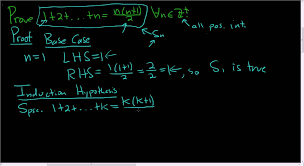 Prove 1+2+...+n = n(n+1)/2 ∀n∈ℤ⁺
all pos. int.
Sn
Proof Base Case
n=1 LHS=1←
RHS = 1(1+1)/2 = 2/2 = 1←, so S₁ is true
Induction Hypothesis
Spse. 1+2+...+k = k(k+1)